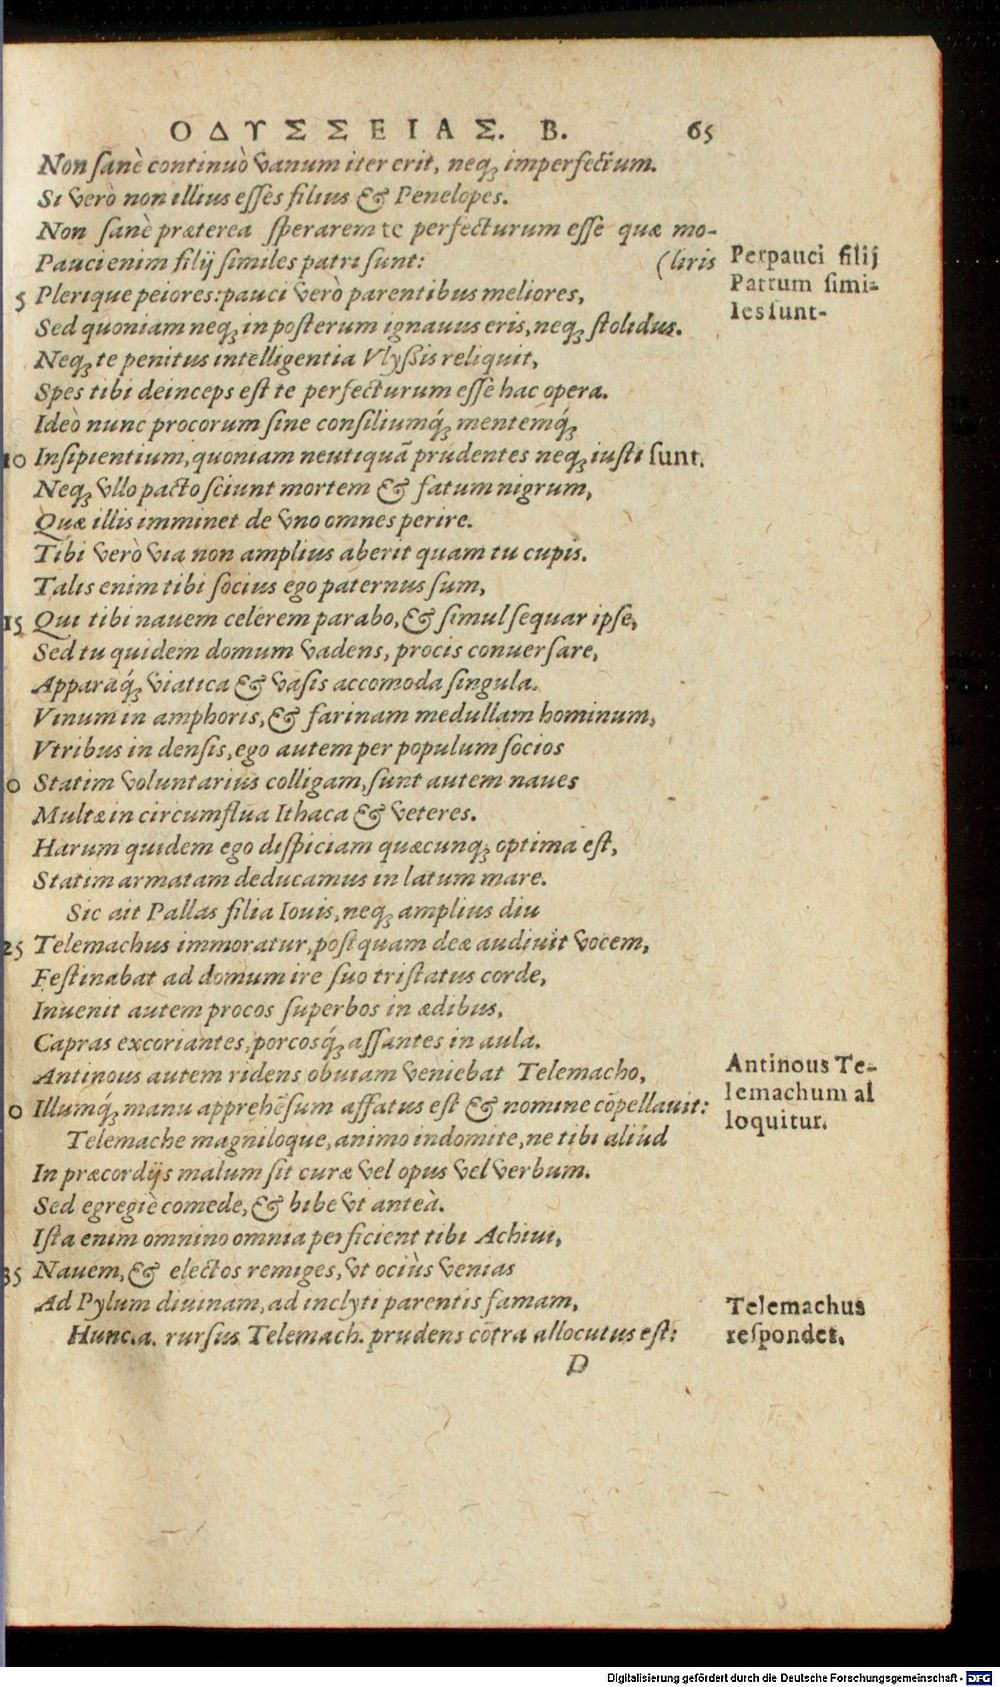 ΟΔΥΣΣΕΙΑΣ. Β. 65
Non sanè continuò vanum iter erit, neq; imperfectum.
Si verò non illius esses filius & Penelopes.
Non sanè præterea sperarem te perfecturum esse quæ mo-
Pauci enim filij similes patri sunt: (liris
5 Plerique peiores: pauci verò parentibus meliores,
Sed quoniam neq; in posterum ignauus eris, neq; stolidus.
Neq; te penitus intelligentia Vlyssis reliquit,
Spes tibi deinceps est te perfecturum esse hac opera.
Ideò nunc procorum sine consiliumq́; mentemq́;
10 Insipientium, quoniam neutiquã prudentes neq; iusti sunt.
Neq; vllo pacto sciunt mortem & fatum nigrum,
Quæ illis imminet de vno omnes perire.
Tibi verò via non amplius aberit quam tu cupis.
Talis enim tibi socius ego paternus sum,
15 Qui tibi nauem celerem parabo, & simul sequar ipse,
Sed tu quidem domum vadens, procis conuersare,
Apparaq́; viatica & vasis accomoda singula.
Vinum in amphoris, & farinam medullam hominum,
Vtribus in densis, ego autem per populum socios
0 Statim voluntarius colligam, sunt autem naues
Multæ in circumflua Ithaca & veteres.
Harum quidem ego dispiciam quæcunq; optima est,
Statim armatam deducamus in latum mare.
Sic ait Pallas filia Iouis, neq; amplius diu
25 Telemachus immoratur, postquam deæ audiuit vocem,
Festinabat ad domum ire suo tristatus corde,
Inuenit autem procos superbos in ædibus,
Capras excoriantes, porcosq́; assantes in aula.
Antinous autem ridens obuiam veniebat Telemacho,
0 Illumq́; manu apprehẽsum affatus est & nomine cõpellauit:
Telemache magniloque, animo indomite, ne tibi aliud
In præcordijs malum sit curæ vel opus vel verbum.
Sed egregiè comede, & bibe vt anteà.
Ista enim omnino omnia perficient tibi Achiui,
35 Nauem, & electos remiges, vt ociùs venias
Ad Pylum diuinam, ad inclyti parentis famam,
Hunc.a. rursus Telemach. prudens cõtra allocutus est:
D
Perpauci filij
Patrum simi-
les sunt-
Antinous Te-
lemachum al
loquitur.
Telemachus
respondet.
Digitalisierung gefördert durch die Deutsche Forschungsgemeinschaft - DFG